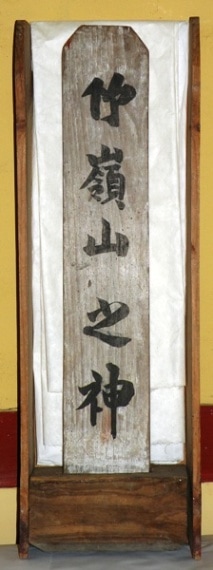 竹嶺山之神